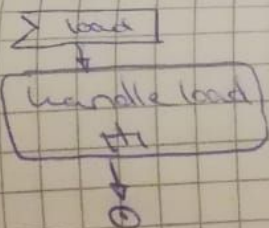 load
handle load